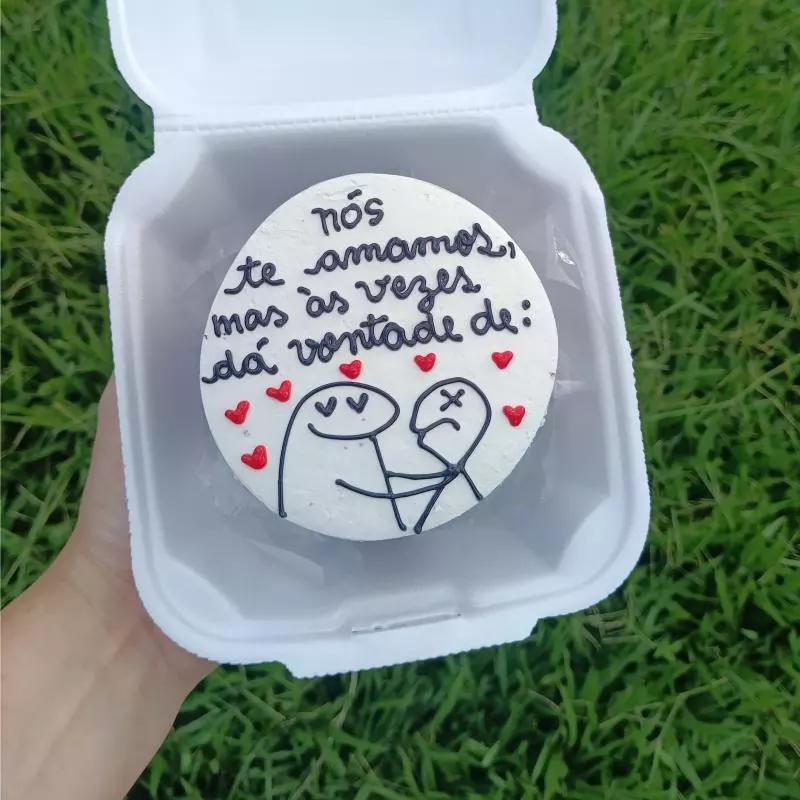 nós
te amamos,
mas às vezes
dá vontade de: